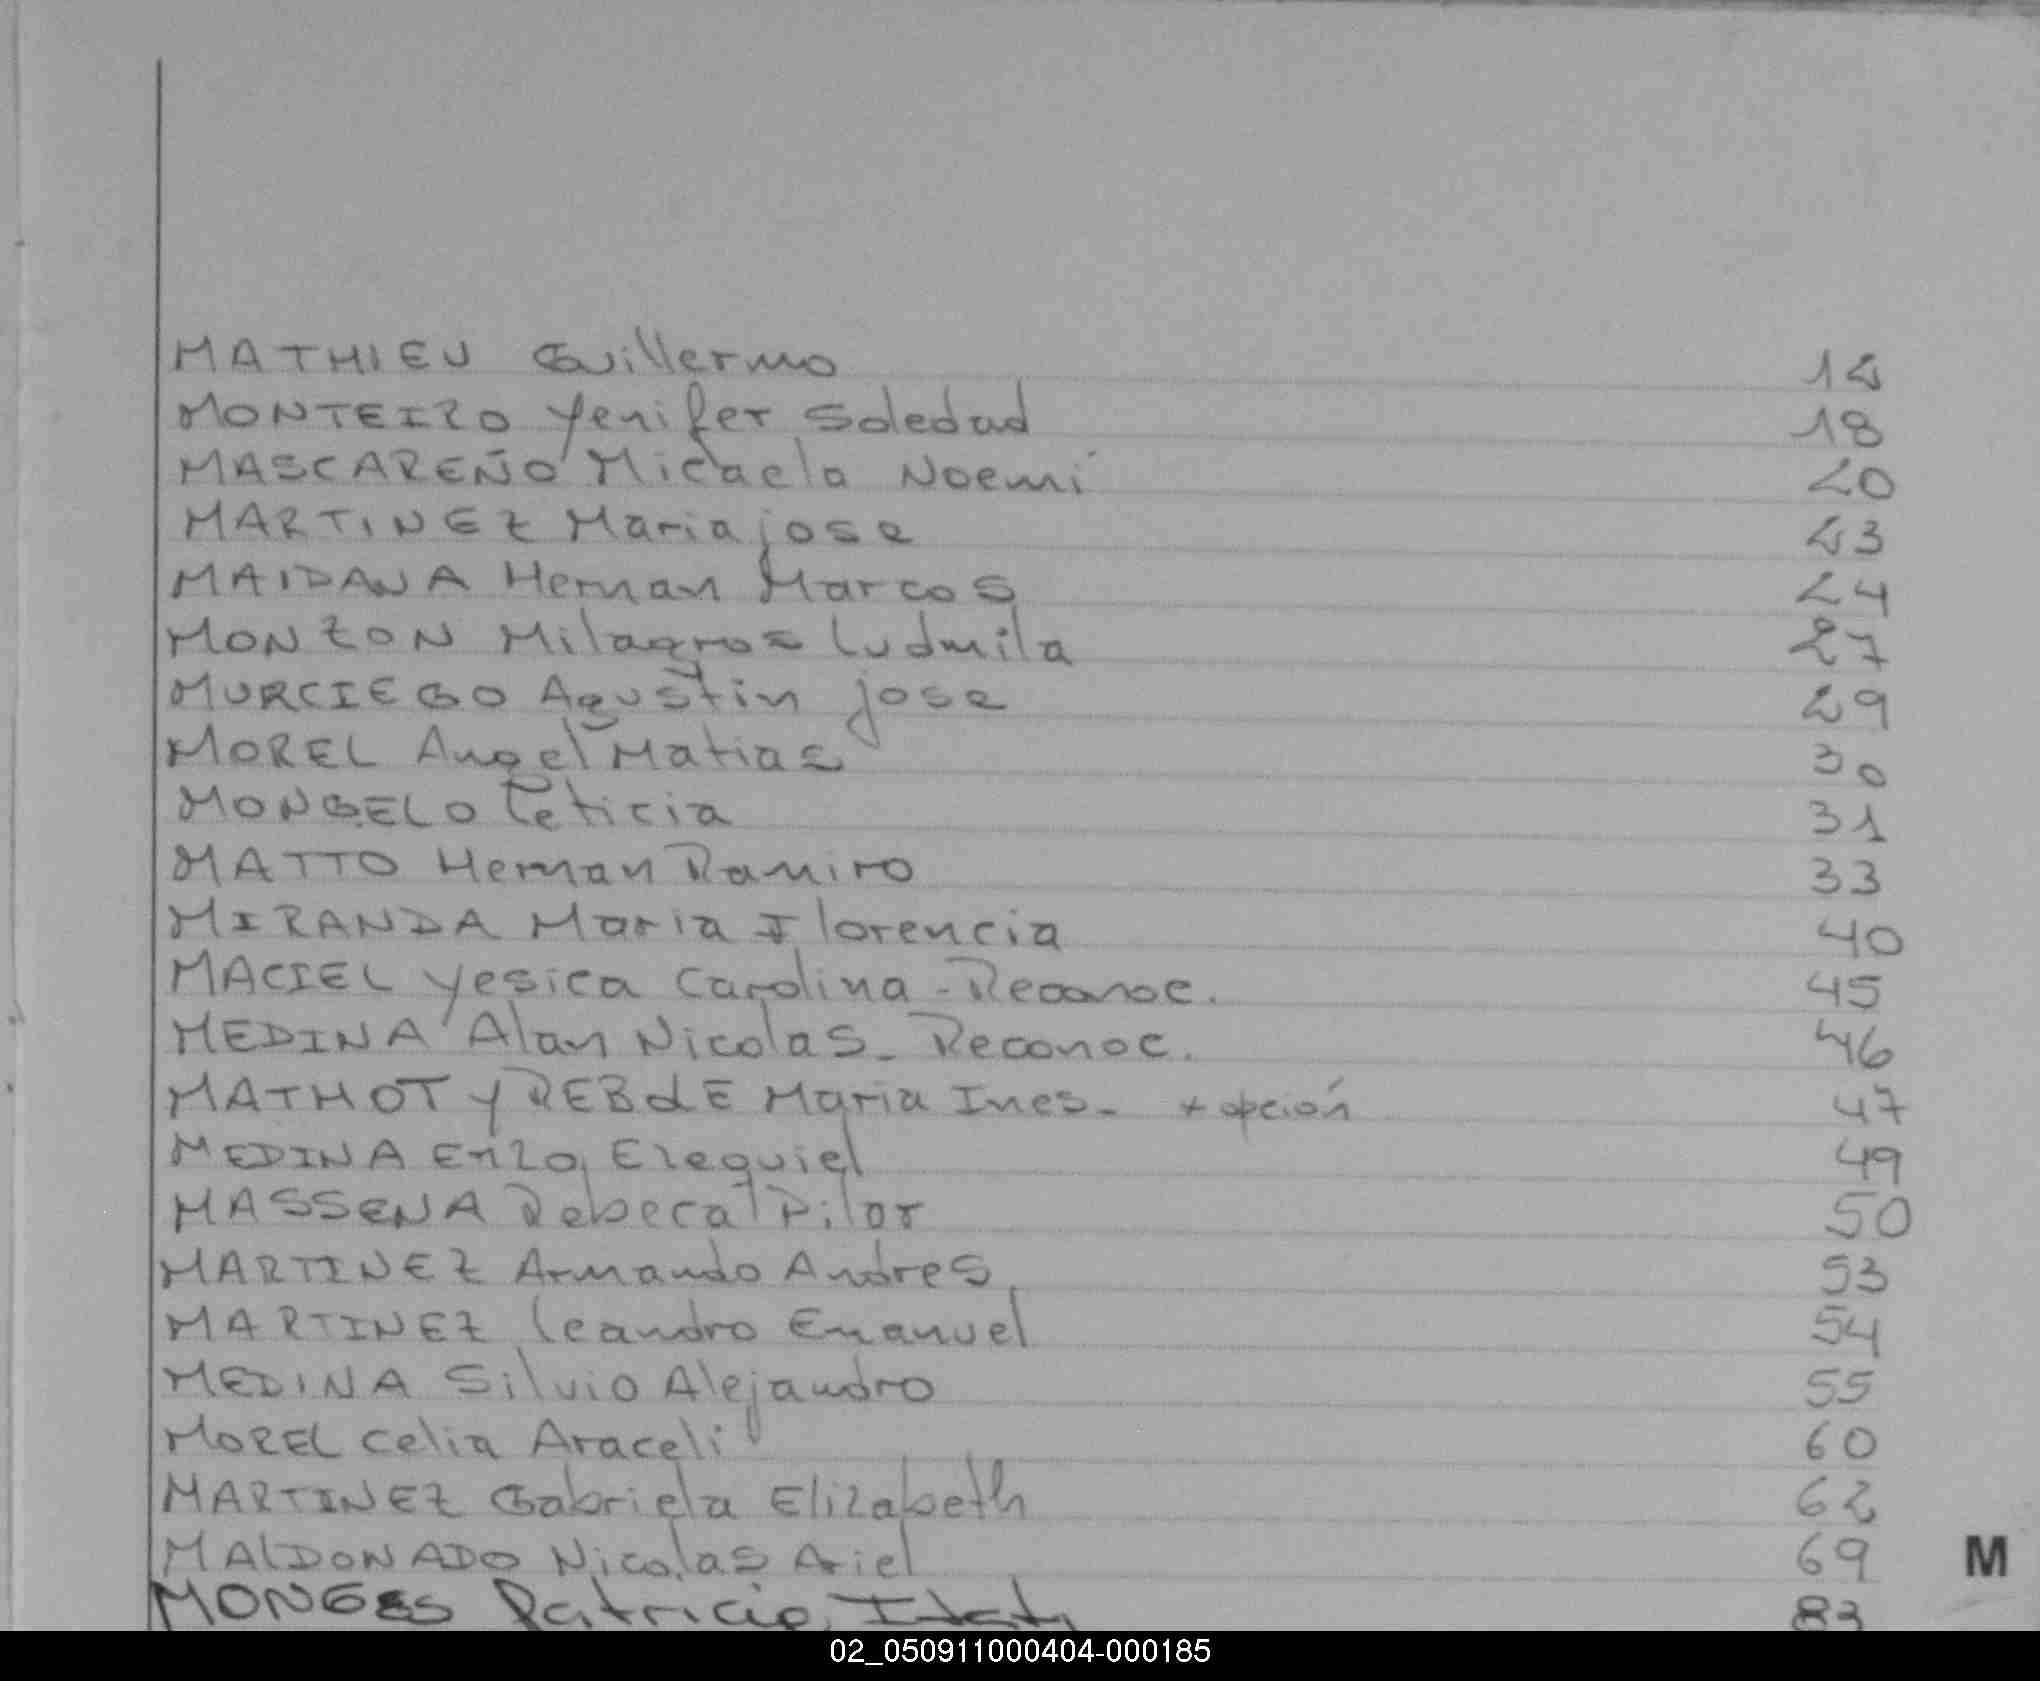 MATHIEU Guillermo 14
MONTEIRO Yenifer Soledad 18
MASCAREÑO Micaela Noemí 20
MARTINEZ Maria jose 23
MAIDANA Hernan Marcos 24
MONZON Milagros Ludmila 27
MURCIEGO Agustin jose 29
MOREL Angel Matias 30
MONGELO Leticia 31
MATTO Hernan Ramiro 33
MIRANDA Maria Florencia 40
MACIEL Yesica Carolina - Reconoc. 45
MEDINA Alan Nicolas - Reconoc. 46
MATHOT Y REBdE Maria Ines - + opción 47
MEDINA Enzo Ezequiel 49
MASSENA Rebeca Pilar 50
MARTINEZ Armando Andres 53
MARTINEZ Leandro Emanuel 54
MEDINA Silvio Alejandro 55
MOREL Celia Araceli 60
MARTINEZ Gabriela Elizabeth 62
MALDONADO Nicolas Ariel 69
M
MONGES Patricia Itati 83
02_050911000404-000185